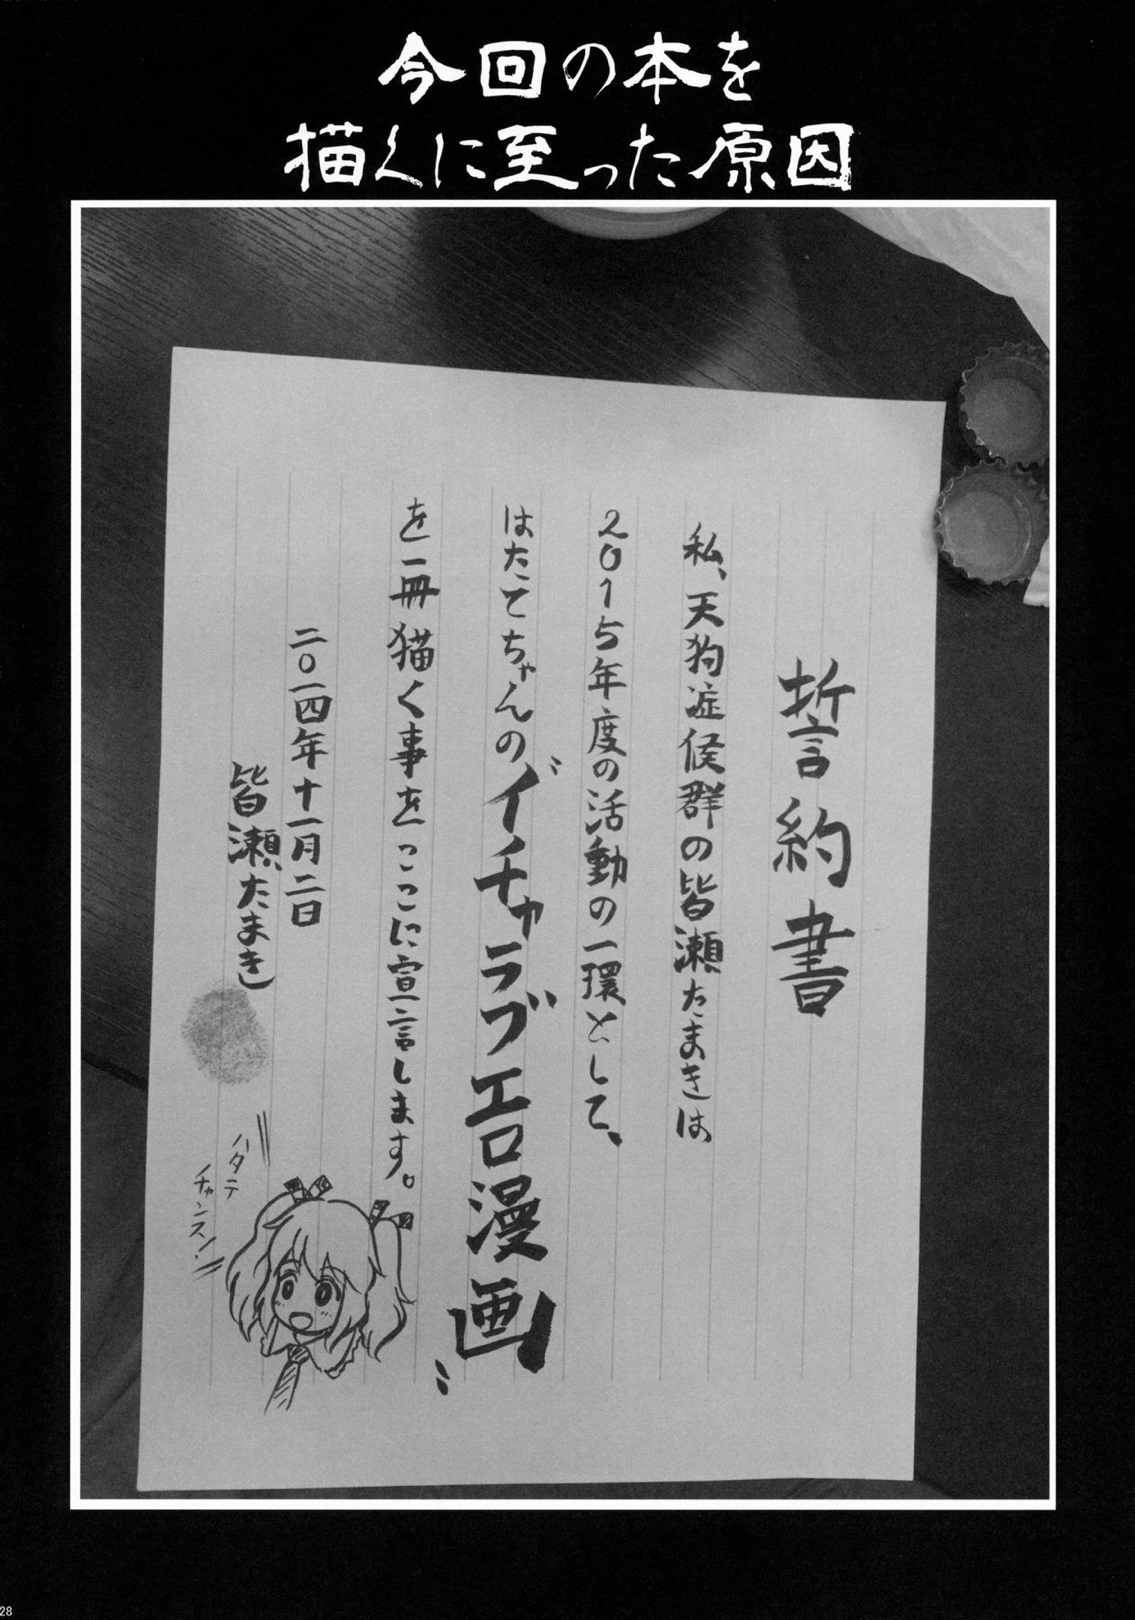 今回の本を
描くに至った原因
誓約書
私、天狗症候群の皆瀬たまきは
2015年度の活動の一環として、
はたてちゃんの"イチャラブエロ漫画"
を一冊猫く事をここに宣言します。
二〇一四年十一月二日
皆瀬たまき
ハタテ
チャンス!
28